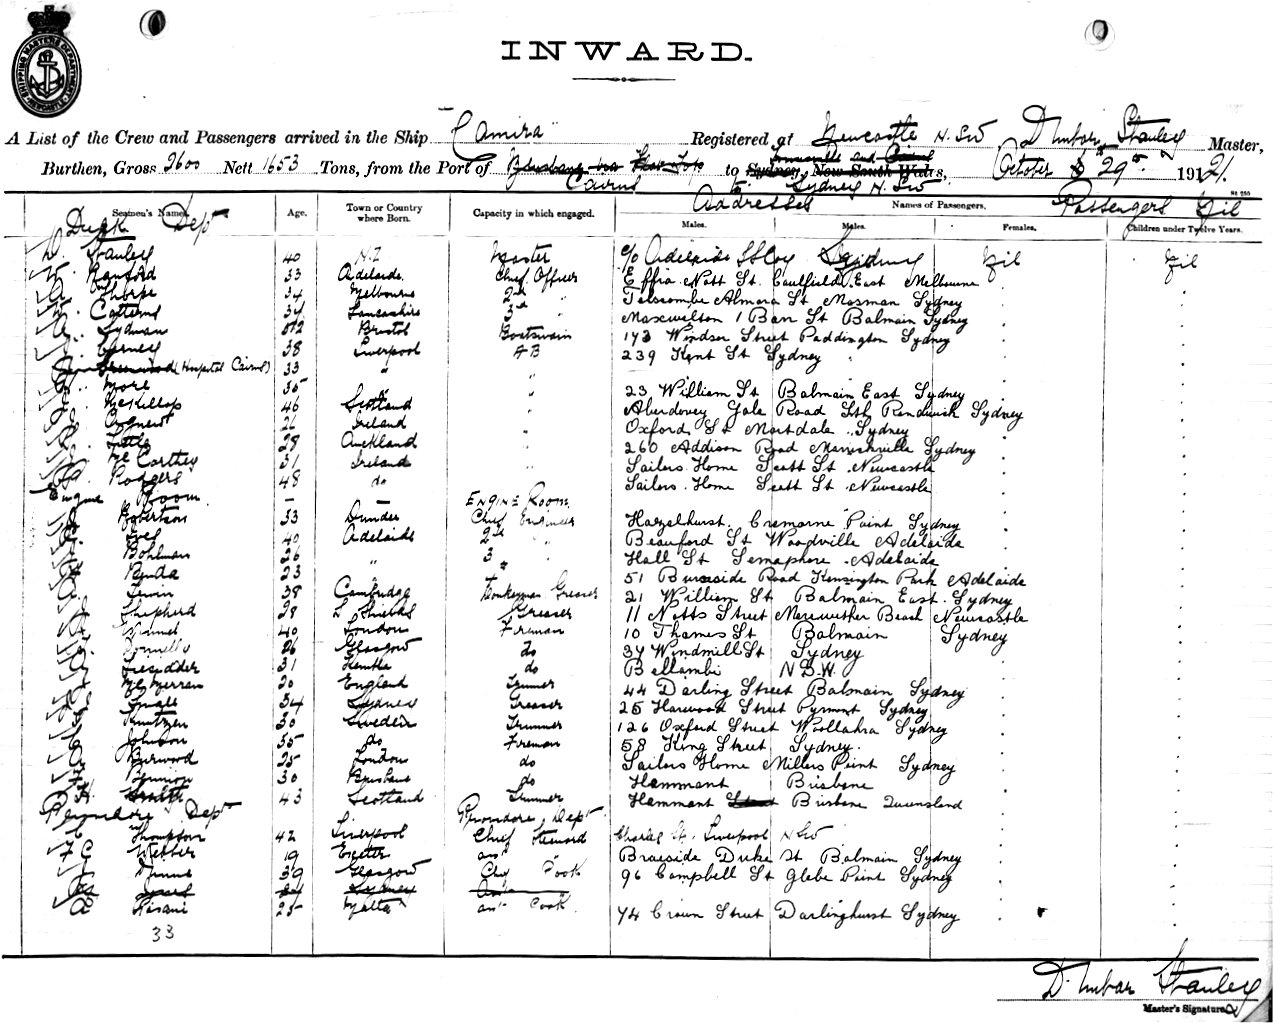 SHIPPING MASTERS DEPARTMENT NEWCASTLE
INWARD.
A List of the Crew and Passengers arrived in the Ship "Camira" Registered at Newcastle N.SW Dunbar Stanley Master,
Burthen, Gross 2600 Nett 1653 Tons, from the Port of Cairns to Sydney, New South Wales, October 29th 1921.
to Sydney N. SW
Seamen's Names. Age. Town or Country where Born. Capacity in which engaged. Addresses Names of Passengers. Passengers Nil
Males. Males. Females. Children under Twelve Years.
Deck Dept
D. Stanley 40 N.Z Master c/o Adelaide SS Coy Sydney Nil Nil
Ranford 33 Adelaide Chief Officer Effra Nott St. Caulfield East Melbourne
Thorpe 34 Melbourne 2nd " Almora St Mosman Sydney
34 Lancashire 3rd " 1 Barr St Balmain Sydney
Lydman 52 Bristol Boatswain 173 Windsor Street Paddington Sydney
38 Liverpool AB 239 Kent St Sydney
(Hospital Cairns) 33 " "
More 35 " 23 William St Balmain East Sydney
McKillop 46 Scotland " Aberdovey Gale Road Sth Randwick Sydney
Agnew 26 Ireland " Oxford St Mortdale Sydney
Little 28 Auckland " 260 Addison Road Marrickville Sydney
McCarthy 31 Ireland " Sailors Home Scott St Newcastle
Rodgers 48 do " Sailors Home Scott St Newcastle
Engine Room - - ENGINE Room
Robertson 33 Dundee Chief Engineer Hazelhurst, Cremorne Point Sydney
40 Adelaide 2nd " Beauford St Woodville Adelaide
Bohlman 26 " 3 " Hall St Semaphore Adelaide
23 " 4 " 51 Burnside Road Kensington Park Adelaide
Lewin 38 Cambridge Donkeyman Greaser 21 William St Balmain East Sydney
Shepherd 28 S Shields Greaser 11 Notts Street Merewether Beach Newcastle
40 London Fireman 10 Thames St Balmain Sydney
Connelly 26 Glasgow do 34 Windmill St Sydney
31 do Bellambi N.S.W.
20 England Trimmer 44 Darling Street Balmain Sydney
34 Sydney Greaser 25 Harwood Street Pyrmont Sydney
Knutzen 30 Sweden Trimmer 126 Oxford Street Woollahra Sydney
Johnson 35 do Fireman 58 King Street Sydney.
Burwood 25 London do Sailors Home Millers Point Sydney
Bennion 30 Brisbane do Hemmant Brisbane
43 Scotland Trimmer Hemmant Street Brisbane Queensland
Providore Dept Providore Dept
Thompson 42 Liverpool Chief Steward Charles St. Liverpool NSW
C Webber 19 Exeter asst " Braeside Duke St Balmain Sydney
39 Glasgow Chf Cook 96 Campbell St Glebe Point Sydney
Sydney
A 25 Malta asst Cook 74 Crown Street Darlinghurst Sydney
33
Dunbar Stanley
Master's Signature